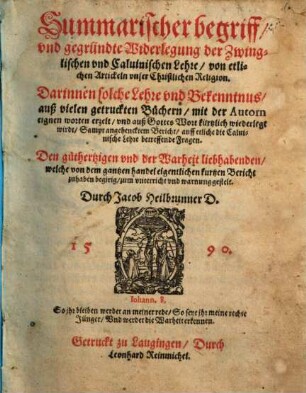 Summarischer begriff/
vnd gegründte Widerlegung der Zwing-
lischen vnd Caluinischen Lehre/ von etli-
chen Artickeln vnser Christlichen Religion.
Darinnen solche Lehre vnd Bekenntnus/
auß vielen getruckten Büchern/ mit der Autorn
eignen worten erzelt/ vnd auß Gottes Wort kürtzlich widerlegt
wirdt/ Sampt angehencktem Bericht/ auff etliche die Calui-
nische Lehre betreffende Fragen.
Den gühertzigen vnd der Warheit liebhabenden/
welche von dem gantzen handel eigentlichen kurtzen Bericht
zuhaben begirig/ zum vnterricht vnd warnung gestelt.
Durch Jacob Heilbrunner D.
15 90.
Iohann. 8.
So jhr bleiben werdet an meiner rede/ So seyt jhr meine rechte
Jünger/ Vnd werdet die Warheit erkennen.
Getruckt zu Laugingen/ Durch
Leonhard Reinmichel.